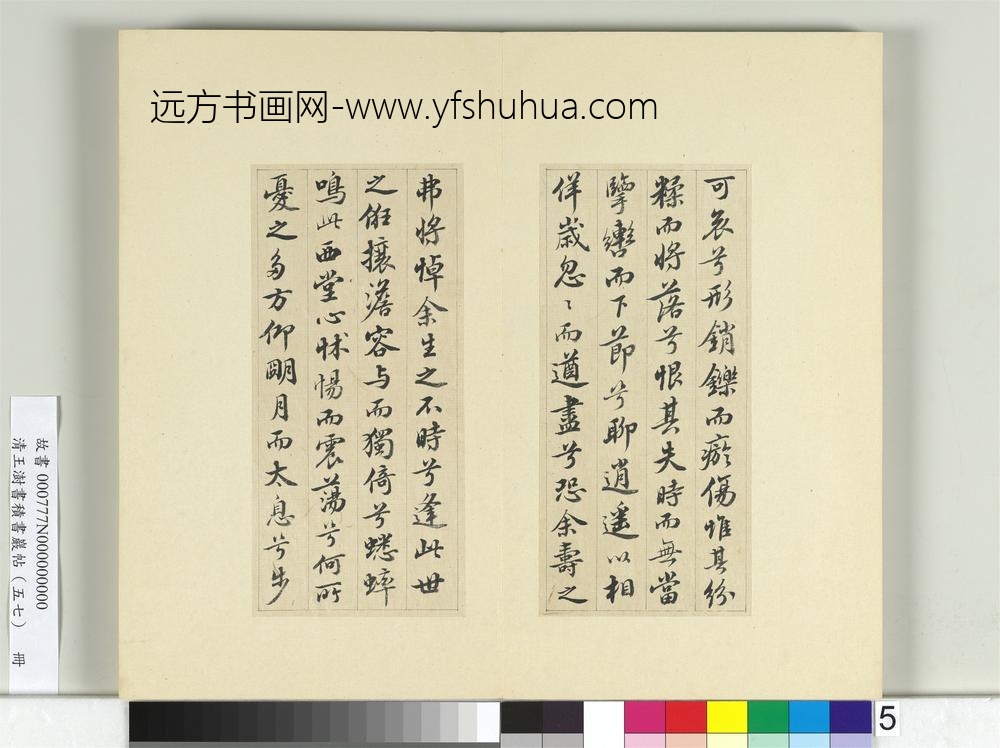 远方书画网-www.yfshuhua.com
可哀兮形銷鑠而瘀傷惟其紛
糅而將落兮恨其失時而無當
擥轡而下節兮聊逍遥以相
佯歲忽〻而遒盡兮恐余壽之
弗將悼余生之不時兮逢此世
之俇攘澹容与而獨倚兮蟋蟀
鳴此西堂心怵惕而震蕩兮何所
憂之多方仰朙月而太息兮步
故書 000777N000000000
清王澍書積書巖帖（五七） 冊
5